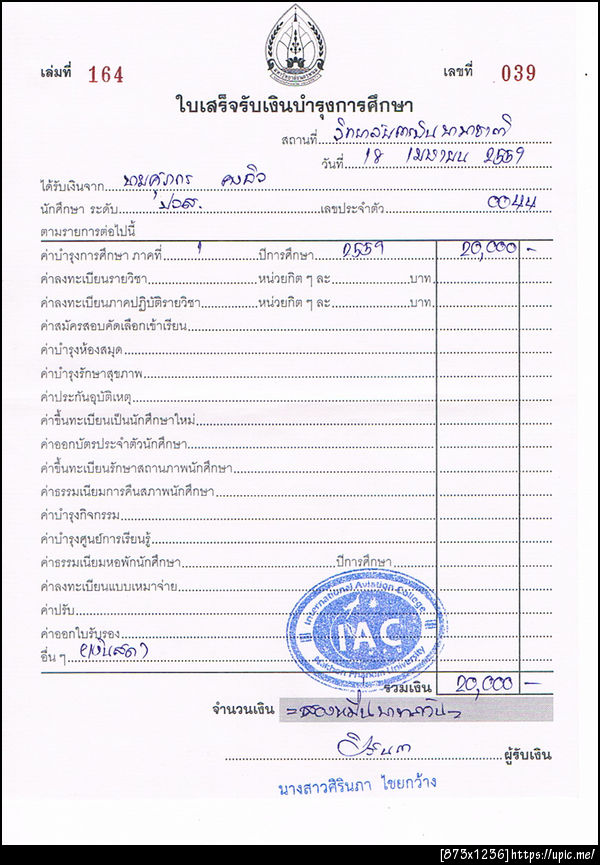 เล่มที่ 164 เลขที่ 039
ใบเสร็จรับเงินบำรุงการศึกษา
สถานที่ วิทยาลัยการบินนานาชาติ
วันที่ 18 เมษายน 2559
ได้รับเงินจาก นายศุภกร
นักศึกษา ระดับ ปวส. เลขประจำตัว 0044
ตามรายการต่อไปนี้
ค่าบำรุงการศึกษา ภาคที่ 1 ปีการศึกษา 2559 20,000 -
ค่าลงทะเบียนรายวิชา หน่วยกิต ๆ ละ บาท
ค่าลงทะเบียนภาคปฏิบัติรายวิชา หน่วยกิต ๆ ละ บาท
ค่าสมัครสอบคัดเลือกเข้าเรียน
ค่าบำรุงห้องสมุด
ค่าบำรุงรักษาสุขภาพ
ค่าประกันอุบัติเหตุ
ค่าขึ้นทะเบียนเป็นนักศึกษาใหม่
ค่าออกบัตรประจำตัวนักศึกษา
ค่าขึ้นทะเบียนรักษาสถานภาพนักศึกษา
ค่าธรรมเนียมการคืนสภาพนักศึกษา
ค่าบำรุงกิจกรรม
ค่าบำรุงศูนย์การเรียนรู้
ค่าธรรมเนียมหอพักนักศึกษา ปีการศึกษา
ค่าลงทะเบียนแบบเหมาจ่าย
ค่าปรับ
ค่าออกใบรับรอง
International Aviation College
IAC
Nakhon Phanom University
อื่น ๆ (เงินสด)
รวมเงิน 20,000 -
จำนวนเงิน =สองหมื่นบาทถ้วน=
ศิรินภา ผู้รับเงิน
นางสาวศิรินภา ไชยกว้าง
[873x1236]https://upic.me/